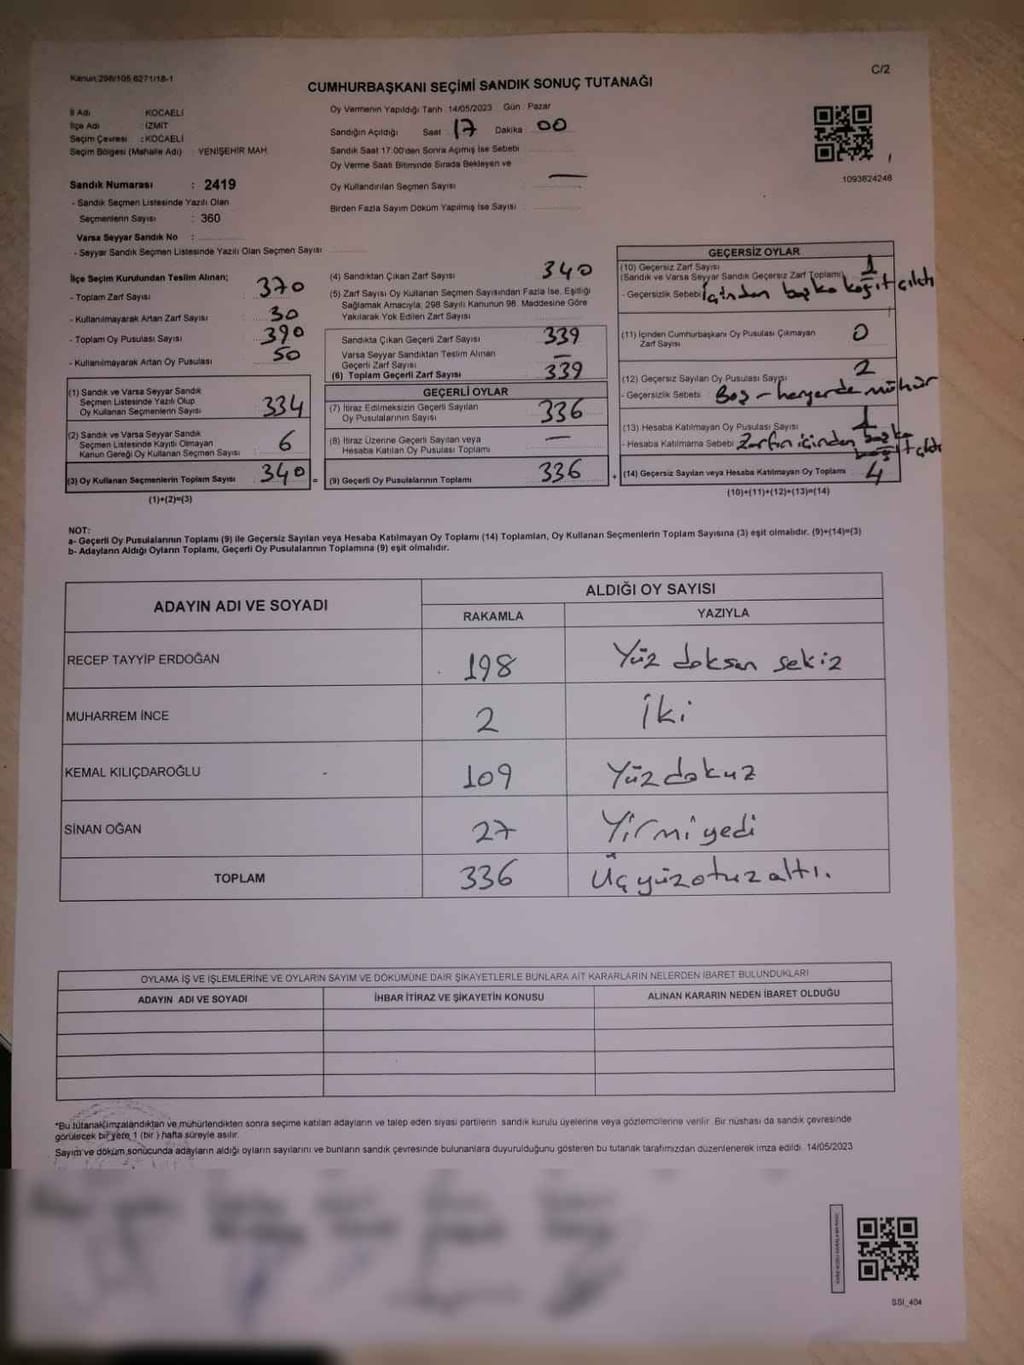 Kanun:298/105 6271/18-1
C/2
CUMHURBAŞKANI SEÇİMİ SANDIK SONUÇ TUTANAĞI
İl Adı KOCAELİ
İlçe Adı : İZMİT
Seçim Çevresi : KOCAELİ
Seçim Bölgesi (Mahalle Adı) : YENİŞEHİR MAH.
Oy Vermenin Yapıldığı Tarih 14/05/2023 Gün Pazar
Sandığın Açıldığı Saat 17 Dakika 00
Sandık Saat 17.00'den Sonra Açılmış İse Sebebi
Oy Verme Saati Bitiminde Sırada Bekleyen ve
Oy Kullandırılan Seçmen Sayısı —
Birden Fazla Sayım Döküm Yapılmış İse Sayısı
1093824248
Sandık Numarası : 2419
- Sandık Seçmen Listesinde Yazılı Olan
Seçmenlerin Sayısı : 360
Varsa Seyyar Sandık No :
- Seyyar Sandık Seçmen Listesinde Yazılı Olan Seçmen Sayısı
İlçe Seçim Kurulundan Teslim Alınan;
- Toplam Zarf Sayısı 370
- Kullanılmayarak Artan Zarf Sayısı 30
- Toplam Oy Pusulası Sayısı 390
- Kullanılmayarak Artan Oy Pusulası 50
(1) Sandık ve Varsa Seyyar Sandık
Seçmen Listesinde Yazılı Olup
Oy Kullanan Seçmenlerin Sayısı 334
(2) Sandık ve Varsa Seyyar Sandık
Seçmen Listesinde Kayıtlı Olmayan
Kanun Gereği Oy Kullanan Seçmen Sayısı 6
(3) Oy Kullanan Seçmenlerin Toplam Sayısı 340 =
(1)+(2)=(3)
(4) Sandıktan Çıkan Zarf Sayısı 340
(5) Zarf Sayısı Oy Kullanan Seçmen Sayısından Fazla İse, Eşitliği
Sağlamak Amacıyla, 298 Sayılı Kanunun 98. Maddesine Göre
Yakılarak Yok Edilen Zarf Sayısı
Sandıkta Çıkan Geçerli Zarf Sayısı 339
Varsa Seyyar Sandıktan Teslim Alınan
Geçerli Zarf Sayısı —
(6) Toplam Geçerli Zarf Sayısı 339
GEÇERLİ OYLAR
(7) İtiraz Edilmeksizin Geçerli Sayılan
Oy Pusulalarının Sayısı 336
(8) İtiraz Üzerine Geçerli Sayılan veya
Hesaba Katılan Oy Pusulası Toplamı —
(9) Geçerli Oy Pusulalarının Toplamı 336 +
GEÇERSİZ OYLAR
(10) Geçersiz Zarf Sayısı
(Sandık ve Varsa Seyyar Sandık Geçersiz Zarf Toplamı) 1
- Geçersizlik Sebebi İçinden başka kağıt çıktı
(11) İçinden Cumhurbaşkanı Oy Pusulası Çıkmayan
Zarf Sayısı 0
(12) Geçersiz Sayılan Oy Pusulası Sayısı 2
- Geçersizlik Sebebi Boş - heryerde mühür
(13) Hesaba Katılmayan Oy Pusulası Sayısı 1
- Hesaba Katılmama Sebebi Zarfın içinden başka
kağıt çıktı
(14) Geçersiz Sayılan veya Hesaba Katılmayan Oy Toplamı 4
(10)+(11)+(12)+(13)=(14)
NOT:
a- Geçerli Oy Pusulalarının Toplamı (9) ile Geçersiz Sayılan veya Hesaba Katılmayan Oy Toplamı (14) Toplamları, Oy Kullanan Seçmenlerin Toplam Sayısına (3) eşit olmalıdır. (9)+(14)=(3)
b- Adayların Aldığı Oyların Toplamı, Geçerli Oy Pusulalarının Toplamına (9) eşit olmalıdır.
ADAYIN ADI VE SOYADI
ALDIĞI OY SAYISI
RAKAMLA YAZIYLA
RECEP TAYYİP ERDOĞAN 198 Yüz doksan sekiz
MUHARREM İNCE 2 İki
KEMAL KILIÇDAROĞLU 109 Yüzdokuz
SİNAN OĞAN 27 Yirmiyedi
TOPLAM 336 Üçyüzotuzaltı.
OYLAMA İŞ VE İŞLEMLERİNE VE OYLARIN SAYIM VE DÖKÜMÜNE DAİR ŞİKAYETLERLE BUNLARA AİT KARARLARIN NELERDEN İBARET BULUNDUKLARI
ADAYIN ADI VE SOYADI İHBAR İTİRAZ VE ŞİKAYETİN KONUSU ALINAN KARARIN NEDEN İBARET OLDUĞU
*Bu tutanak imzalandıktan ve mühürlendikten sonra seçime katılan adayların ve talep eden siyasi partilerin sandık kurulu üyelerine veya gözlemcilerine verilir. Bir nüshası da sandık çevresinde
görülecek bir yere 1 (bir) hafta süreyle asılır.
Sayım ve döküm sonucunda adayların aldığı oyların sayılarını ve bunların sandık çevresinde bulunanlara duyurulduğunu gösteren bu tutanak tarafımızdan düzenlenerek imza edildi 14/05/2023
SSI_404